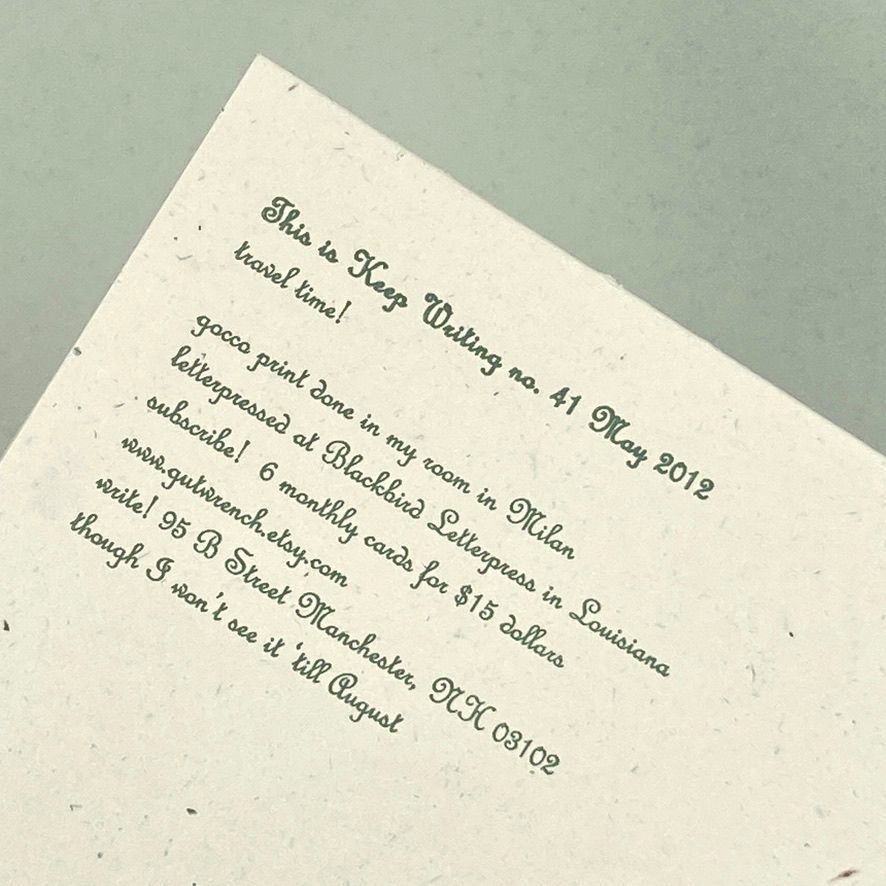 This is Keep Writing no. 41 May 2012
travel time!
gocco print done in my room in Milan
letterpressed at Blackbird Letterpress in Louisiana
subscribe! 6 monthly cards for $15 dollars
www.gutwrench.etsy.com
write! 95 B Street Manchester, NH 03102
though I won't see it 'till August